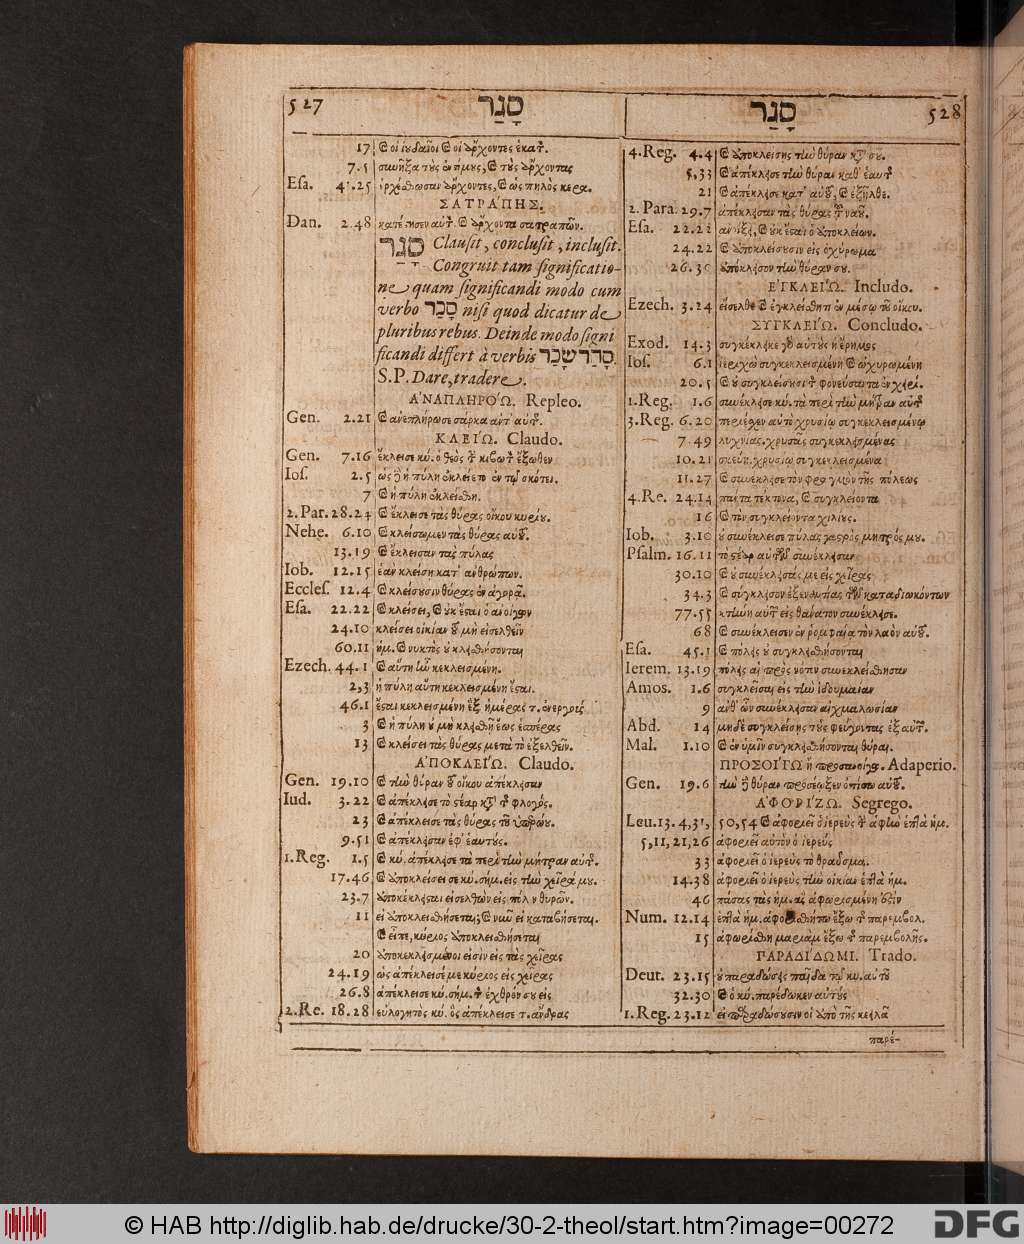 527 סָגַר
17 οἱ ἰουδαῖοι οἱ ἄρχοντες ἑκατ.
7.5 συνῆξα τοὺς ἐντίμους, τοὺς ἄρχοντας
Esa. 41.25 ἐρχέσθωσαν ἄρχοντες, ὡς πηλὸς κερα.
ΣΑΤΡΑΠΗΣ.
Dan. 2.48 κατέστησεν αὐτ. ἄρχοντα σατραπῶν.
סגר Clausit, conclusit, inclusit.
Congruit tam significatio-
ne quam significandi modo cum
verbo סָכַר nisi quod dicatur de
pluribus rebus. Deinde modo signi
ficandi differt à verbis סָהַר שָׂכַר
S.P. Dare, tradere.
ἈΝΑΠΛΗΡΌΩ. Repleo.
Gen. 2.21 ἀνεπλήρωσε σάρκα ἀντ' αὐτ.
ΚΛΕΊΩ. Claudo.
Gen. 7.16 ἔκλεισε κύ. ὁ θεὸς τ κιβωτ ἔξωθεν
Ios. 2.5 ὡς ἡ πύλη ἐκλείετο ἐν τῷ σκότει.
7 ἡ πύλη ἐκλείσθη.
2.Par. 28.24 ἔκλεισε τὰς θύρας οἴκου κυρίου.
Nehe. 6.10 κλείσωμεν τὰς θύρας αὐτ.
13.19 ἔκλεισαν τὰς πύλας
Iob. 12.15 ἐὰν κλείση κατ' ἀνθρώπων.
Eccles. 12.4 κλείσουσιν θύρας ἐν ἀγορᾷ.
Esa. 22.22 κλείσει, οὐκ ἔσται ὁ ἀνοίγων
24.10 κλείσει οἰκίαν τοῦ μὴ εἰσελθεῖν
60.11 ἡμ. νυκτὸς οὐ κλεισθήσονται
Ezech. 44.1 αὕτη ἦν κεκλεισμένη.
2,3 ἡ πύλη αὕτη κεκλεισμένη ἔσται.
46.1 ἔσται κεκλεισμένη ἓξ ἡμέρας τ. ἐνεργοὺς
3 ἡ πύλη οὐ μὴ κλεισθῇ ἕως ἑσπέρας
13 κλείσει τὰς θύρας μετὰ τὸ ἐξελθεῖν.
ἈΠΟΚΛΕΊΩ. Claudo.
Gen. 19.10 τὴν θύραν τοῦ οἴκου ἀπέκλεισαν
Iud. 3.22 ἀπέκλεισε τὸ στέαρ κατὰ τ φλογός.
23 ἀπέκλεισε τὰς θύρας τοῦ ὑπερῴου.
9.51 ἀπέκλεισαν ἐφ' ἑαυτούς.
1.Reg. 1.5 κύ. ἀπέκλεισε τὰ περὶ τὴν μήτραν αὐτ.
17.46 ἀποκλείσει σε κύ. σήμ. εἰς τὴν χεῖρά μου.
23.7 ἀποκέκλεισται εἰσελθὼν εἰς πόλιν θυρῶν.
11 εἰ ἀποκλεισθήσεται; νῦν εἰ καταβήσεται.
εἶπε, κύριος ἀποκλεισθήσεται
20 ἀποκεκλεισμένοι εἰσιν εἰς τὰς χεῖρας
24.19 ὡς ἀπέκλεισέ με κύριος εἰς χεῖρας
26.8 ἀπέκλεισε κύ. σήμ. τ ἐχθρόν σου εἰς
2.Re. 18.28 εὐλογητὸς κύ. ὃς ἀπέκλεισε τ. ἄνδρας
סָגַר 528
4.Reg. 4.4 ἀπόκλεισον τὴν θύραν κατὰ σου.
5,33 ἀπέκλεισε τὴν θύραν καθ' ἑαυτ
21 ἀπέκλεισε κατ' αὐτ, ἐξῆλθε.
2.Para. 29.7 ἀπέκλεισαν τὰς θύρας τ ναοῦ.
Esa. 22.22 ἀνοίξει, οὐκ ἔσται ὁ ἀποκλείων.
24.22 ἀποκλείσουσιν εἰς ὀχύρωμα
26.20 ἀπόκλεισον τὴν θύραν σου.
ἘΓΚΛΕΊΩ. Includo.
Ezech. 3.24 εἴσελθε ἐγκλείσθητι ἐν μέσῳ τοῦ οἴκου.
ΣΥΓΚΛΕΊΩ. Concludo.
Exod. 14.3 συγκέκλεικε γὰρ αὐτοὺς ἡ ἔρημος
Ios. 6.1 ἱεριχὼ συγκεκλεισμένη ὠχυρωμένη
20.5 οὐ συγκλείσουσι τ φονεύσαντα ἐν χειρί.
1.Reg. 1.6 συνέκλεισε κύ. τὰ περὶ τὴν μήτραν αὐτ
3.Reg. 6.20 περιέσχεν αὐτὸ χρυσίῳ συγκεκλεισμένῳ
7.49 λυχνίας χρυσᾶς συγκεκλεισμένας
10.21 σκεύη χρυσίῳ συγκεκλεισμένα
11.27 συνέκλεισε τὸν φραγμὸν τῆς πόλεως
4.Re. 24.14 πάντα τέκτονα, συγκλείοντα
16 τὸν συγκλείοντα χιλίους.
Iob. 3.10 οὐ συνέκλεισε πύλας γαστρὸς μητρός μου.
Psalm. 16.11 τὸ στέαρ αὐτῶν συνέκλεισαν
30.10 οὐ συνέκλεισάς με εἰς χεῖρας
34.3 σύγκλεισον ἐξεναντίας τῶν καταδιωκόντων
77.55 κτήνη αὐτ εἰς θάνατον συνέκλεισε.
68 συνέκλεισεν ἐν ῥομφαίᾳ τὸν λαὸν αὐτ.
Esa. 45.1 πόλεις οὐ συγκλεισθήσονται
Ierem. 13.19 πόλεις αἱ πρὸς νότον συνεκλείσθησαν
Amos. 1.6 συγκλεῖσαι εἰς τὴν ἰδουμαίαν
9 ἀνθ' ὧν συνέκλεισαν αἰχμαλωσίαν
Abd. 14 μηδὲ συγκλείσῃς τοὺς φεύγοντας ἐξ αὐτ.
Mal. 1.10 ἐν ὑμῖν συγκλεισθήσονται θύραι.
ΠΡΟΣΟΊΓΩ ἢ προσανοίγω. Adaperio.
Gen. 19.6 τὴν θύραν προσέῳξεν ὀπίσω αὐτ.
ἈΦΟΡΊΖΩ. Segrego.
Leu. 13.4,31, 50,54 ἀφοριεῖ ὁ ἱερεὺς τ ἀφὴν ἑπτὰ ἡμ.
5,11,21,26 ἀφοριεῖ αὐτὸν ὁ ἱερεύς
33 ἀφοριεῖ ὁ ἱερεὺς τὸ θραῦσμα.
14.38 ἀφοριεῖ ὁ ἱερεὺς τὴν οἰκίαν ἑπτὰ ἡμ.
46 πάσας τὰς ἡμ. ἃς ἀφωρισμένη ἐστίν
Num. 12.14 ἑπτὰ ἡμ. ἀφορισθήτω ἔξω τ παρεμβολ.
15 ἀφωρίσθη μαριὰμ ἔξω τ παρεμβολῆς.
ΠΑΡΑΔΊΔΩΜΙ. Trado.
Deut. 23.15 οὐ παραδώσεις παῖδα τῷ κυ. αὐτοῦ
32.30 ὁ κύ. παρέδωκεν αὐτούς
1.Reg. 23.12 εἰ παραδώσουσιν οἱ ἀπὸ τῆς κεϊλὰ
παρέ-
© HAB http://diglib.hab.de/drucke/30-2-theol/start.htm?image=00272
DFG